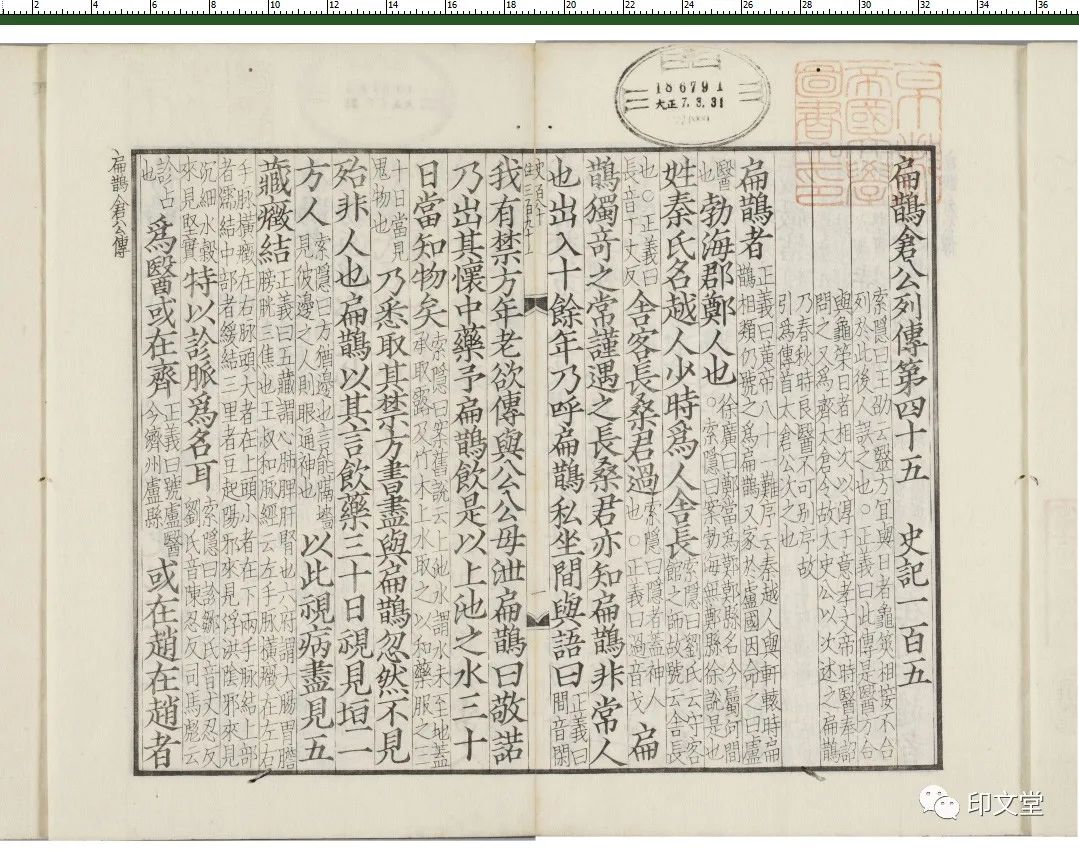 2 4 6 8 10 12 14 16 18 20 22 24 26 28 30 32 34 36
186791
大正7.3.31
扁鵲倉公列傳第四十五 史記一百五
索隱曰王劭云醫方宜與日者龜筴相接不合
列於此後人誤之也○正義曰此傳是醫方合
與龜策日者相次以淳于意孝文帝時醫奉詔
問之又爲齊太倉令故太史公以次述之扁鵲
乃春秋時良醫不可別序故
引爲傳首太倉公次之也
扁鵲者 正義曰黃帝八十一難序云秦越人與軒轅時扁鵲相類仍號之爲扁鵲又家於盧國因命之曰盧
醫也 勃海郡鄭人也 徐廣曰鄭當爲鄚鄚縣名今屬河間○索隱曰案勃海無鄭縣徐說是也
姓秦氏名越人少時爲人舍長 索隱曰劉氏云守客館之師故號云舍長
也○正義曰長音丁丈反 舍客長桑君過 索隱曰隱者蓋神人也○正義曰過音戈 扁
鵲獨奇之常謹遇之長桑君亦知扁鵲非常人
也出入十餘年乃呼扁鵲私坐間與語曰 正義曰間音閑
我有禁方年老欲傳與公公毋泄扁鵲曰敬諾
乃出其懷中藥予扁鵲飲是以上池之水三十
日當知物矣 索隱曰案舊說云上池水謂水未至地蓋承取露及竹木上水取之以和藥服之三
十日當見鬼物也 乃悉取其禁方書盡與扁鵲忽然不見
殆非人也扁鵲以其言飲藥三十日視見垣一
方人 索隱曰方猶邊也言能隔墻見彼邊之人則眼通神也 以此視病盡見五
藏癥結 正義曰五藏謂心肺脾肝腎也六府謂大腸胃膽膀胱三焦也王叔和脉經云左手脉橫癥在左右
手脉橫癥在右脉頭大者在上頭小者在下兩手脉結上部者濡結中部者緩結三里者豆起陽邪來見浮洪陰邪來見
沉細水穀來見堅實 特以診脈爲名耳 索隱曰診鄒氏音丈忍反劉氏音陳忍反司馬彪云
診占也 爲醫或在齊 正義曰號盧醫今濟州盧縣 或在趙在趙者
扁鵲倉公傳
印文堂